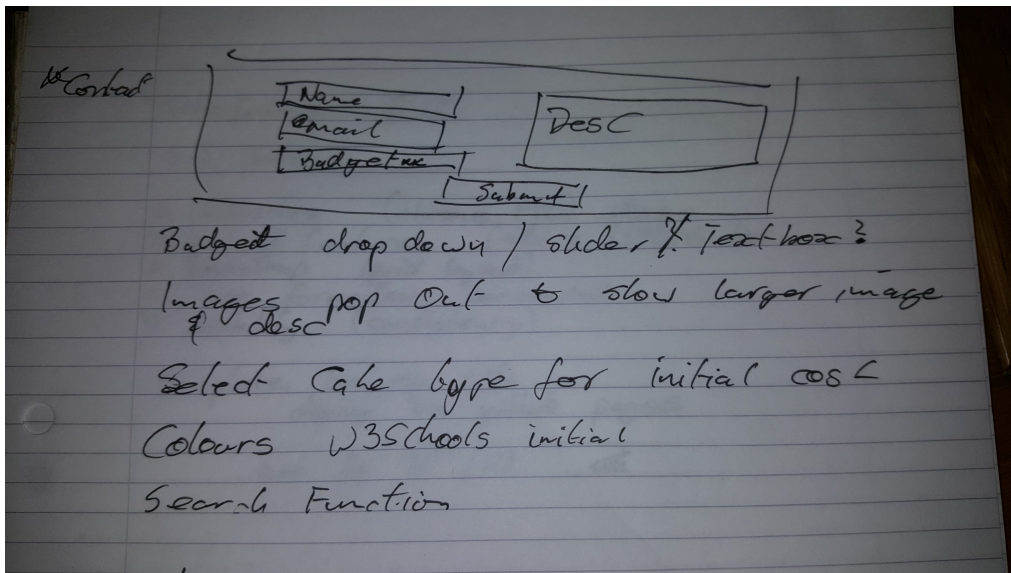 * Contact
Name
email
Budget
Desc
Submit
Budget drop down / slider / Textbox?
Images pop out to slow larger image
& desc
Select Cake type for initial cost
Colours W3Schools initial
Search Function